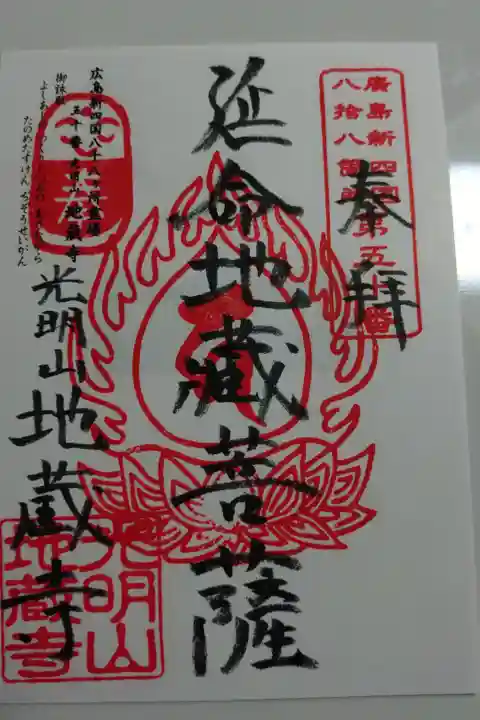 奉拝
廣島新四國
八拾八箇所第五十番
延命地蔵菩薩
光明山地蔵寺
光明山
地蔵寺
広島新四国八十八ヶ所霊場
五十番 光明山 地蔵寺
御詠歌
たのめたすけん ぢぞうせいがん